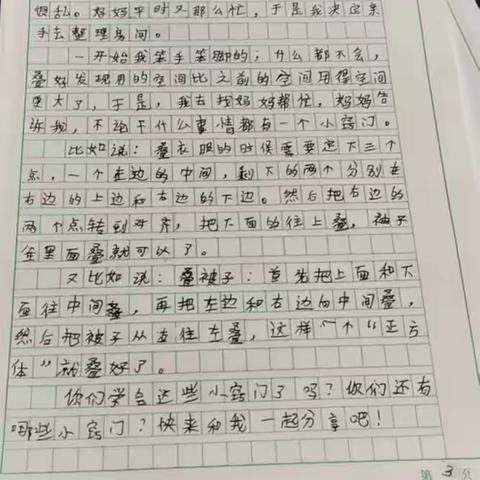 很乱。妈妈平时又那么忙，于是我决定亲
手去整理房间。
一开始我笨手笨脚的；什么都不会，
叠好发现用的空间比之前的空间用得空间
更大了，于是，我去找妈妈帮忙，妈妈告
诉我，不论干什么事情都有一个小窍门。
比如说：叠衣服的时候需要选下三个
点，一个在边的中间，剩下的两个分别在
右边的上边和右边的下边。然后把右边的
两个点转到对齐，把下面的往上叠，袖子
往里面叠就可以了。
又比如说：叠被子：首先把上面和下
面往中间叠，再把左边和右边向中间叠，
然后把被子从右往左叠，这样一个“正方
体”就叠好了。
你们学会这些小窍门了吗？你们还有
哪些小窍门？快来和我一起分享吧！
第3页